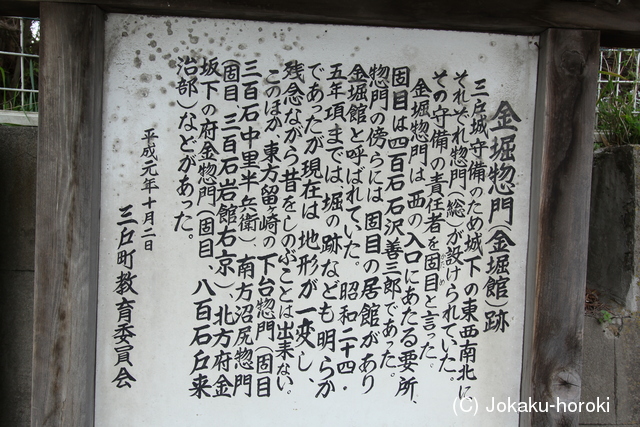 金堀惣門(金堀館)跡
三戸城守備のため城下の東西南北に
それぞれ惣門(総)が設けられていた。
その守備の責任者を固目と言った。
かため
金堀惣門は、西の入口にあたる要所、
固目は四百石石沢善三郎であった。
惣門の傍らには、固目の居館があり
金堀館と呼ばれていた。昭和二十四・
五年項までは、堀の跡なども明らか
であったが現在は、地形が一変し、
残念ながら昔をしのぶことは出来ない。
このほか、東方留ヶ崎の下台惣門(固目
三百石中里半兵衛)、南方沼尻惣門
(固目、三百石岩館右京)、北方府金
坂下の府金惣門(固目、八百石戸来
治部)などがあった。
平成元年十月二日
三戸町教育委員会
(C) Jokaku-horoki